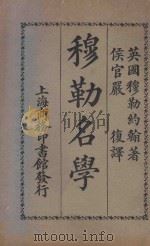 英國穆勒約翰著
侯官嚴復譯
穆勒名學
上海商務印書館發行
www.mtoou.info